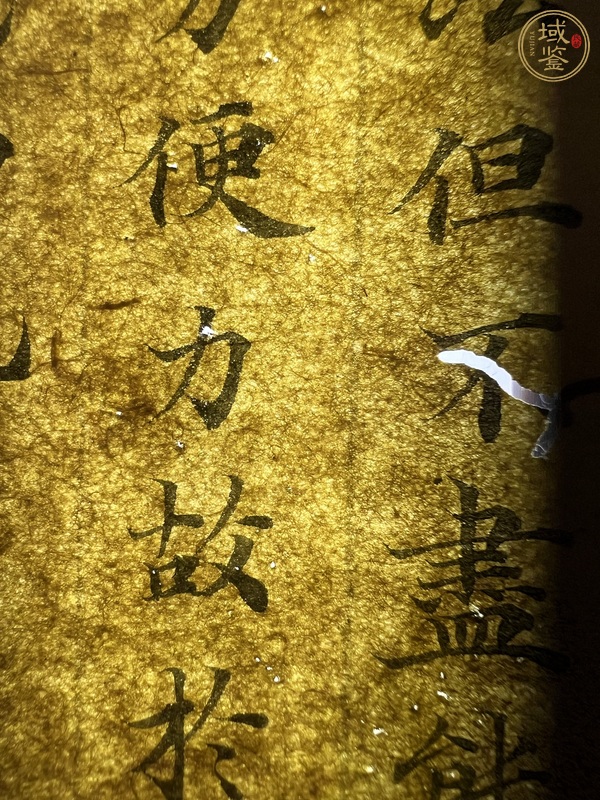 但不盡能
方便力故於
域鉴